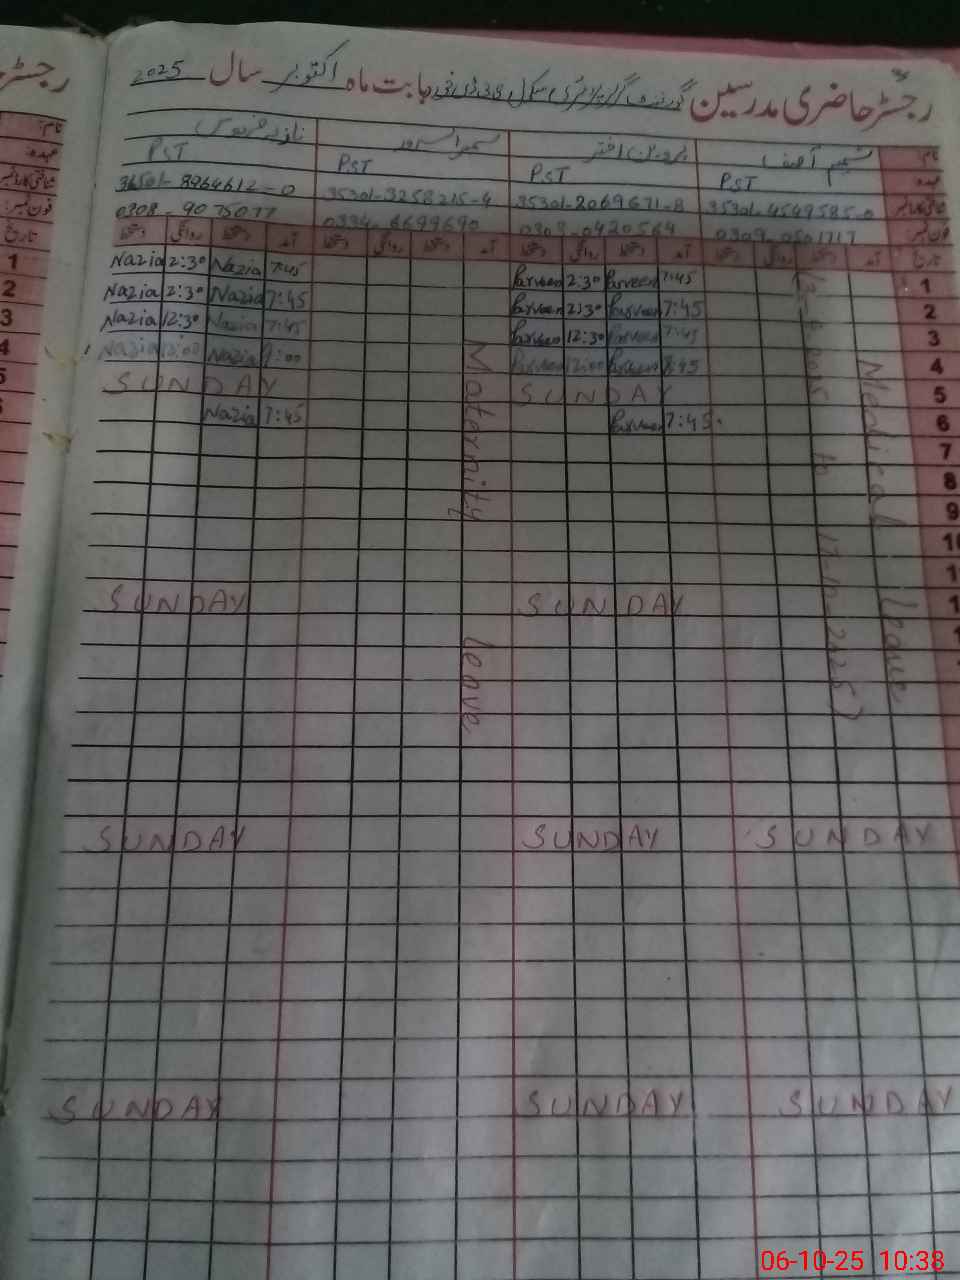 رجسٹر حاضری مدرسین گورنمنٹ گرلز پرائمری سکول بابت ماہ اکتوبر سال 2025
نام: شمیم آصف پروین اختر سمیرا سرور نازیہ فردوس
عہدہ PST PST PST PST
شناختی کارڈ نمبر 35301-4549585-0 35301-2069671-8 35301-3258215-4 36501-8964612-0
فون نمبر: 0309-0501717 0308-0420564 0334-6699690 0308-9075077
تاریخ آمد دستخط روانگی دستخط آمد دستخط روانگی دستخط آمد دستخط روانگی دستخط آمد دستخط روانگی دستخط
1 7:45 Parveen 2:30 Parveen 7:45 Nazia 2:30 Nazia
2 7:45 Parveen 2:30 Parveen 7:45 Nazia 2:30 Nazia
3 7:45 Parveen 12:30 Parveen 7:45 Nazia 12:30 Nazia
4 Parveen 12:00 Parveen Nazia 12:00 Nazia
5 SUNDAY SUNDAY
6 7:45 Parveen 7:45 Nazia
7
8
9
10
Medical leave
to 17-10-2025)
Maternity leave
SUNDAY SUNDAY
SUNDAY SUNDAY SUNDAY
SUNDAY SUNDAY SUNDAY
06-10-25 10:38